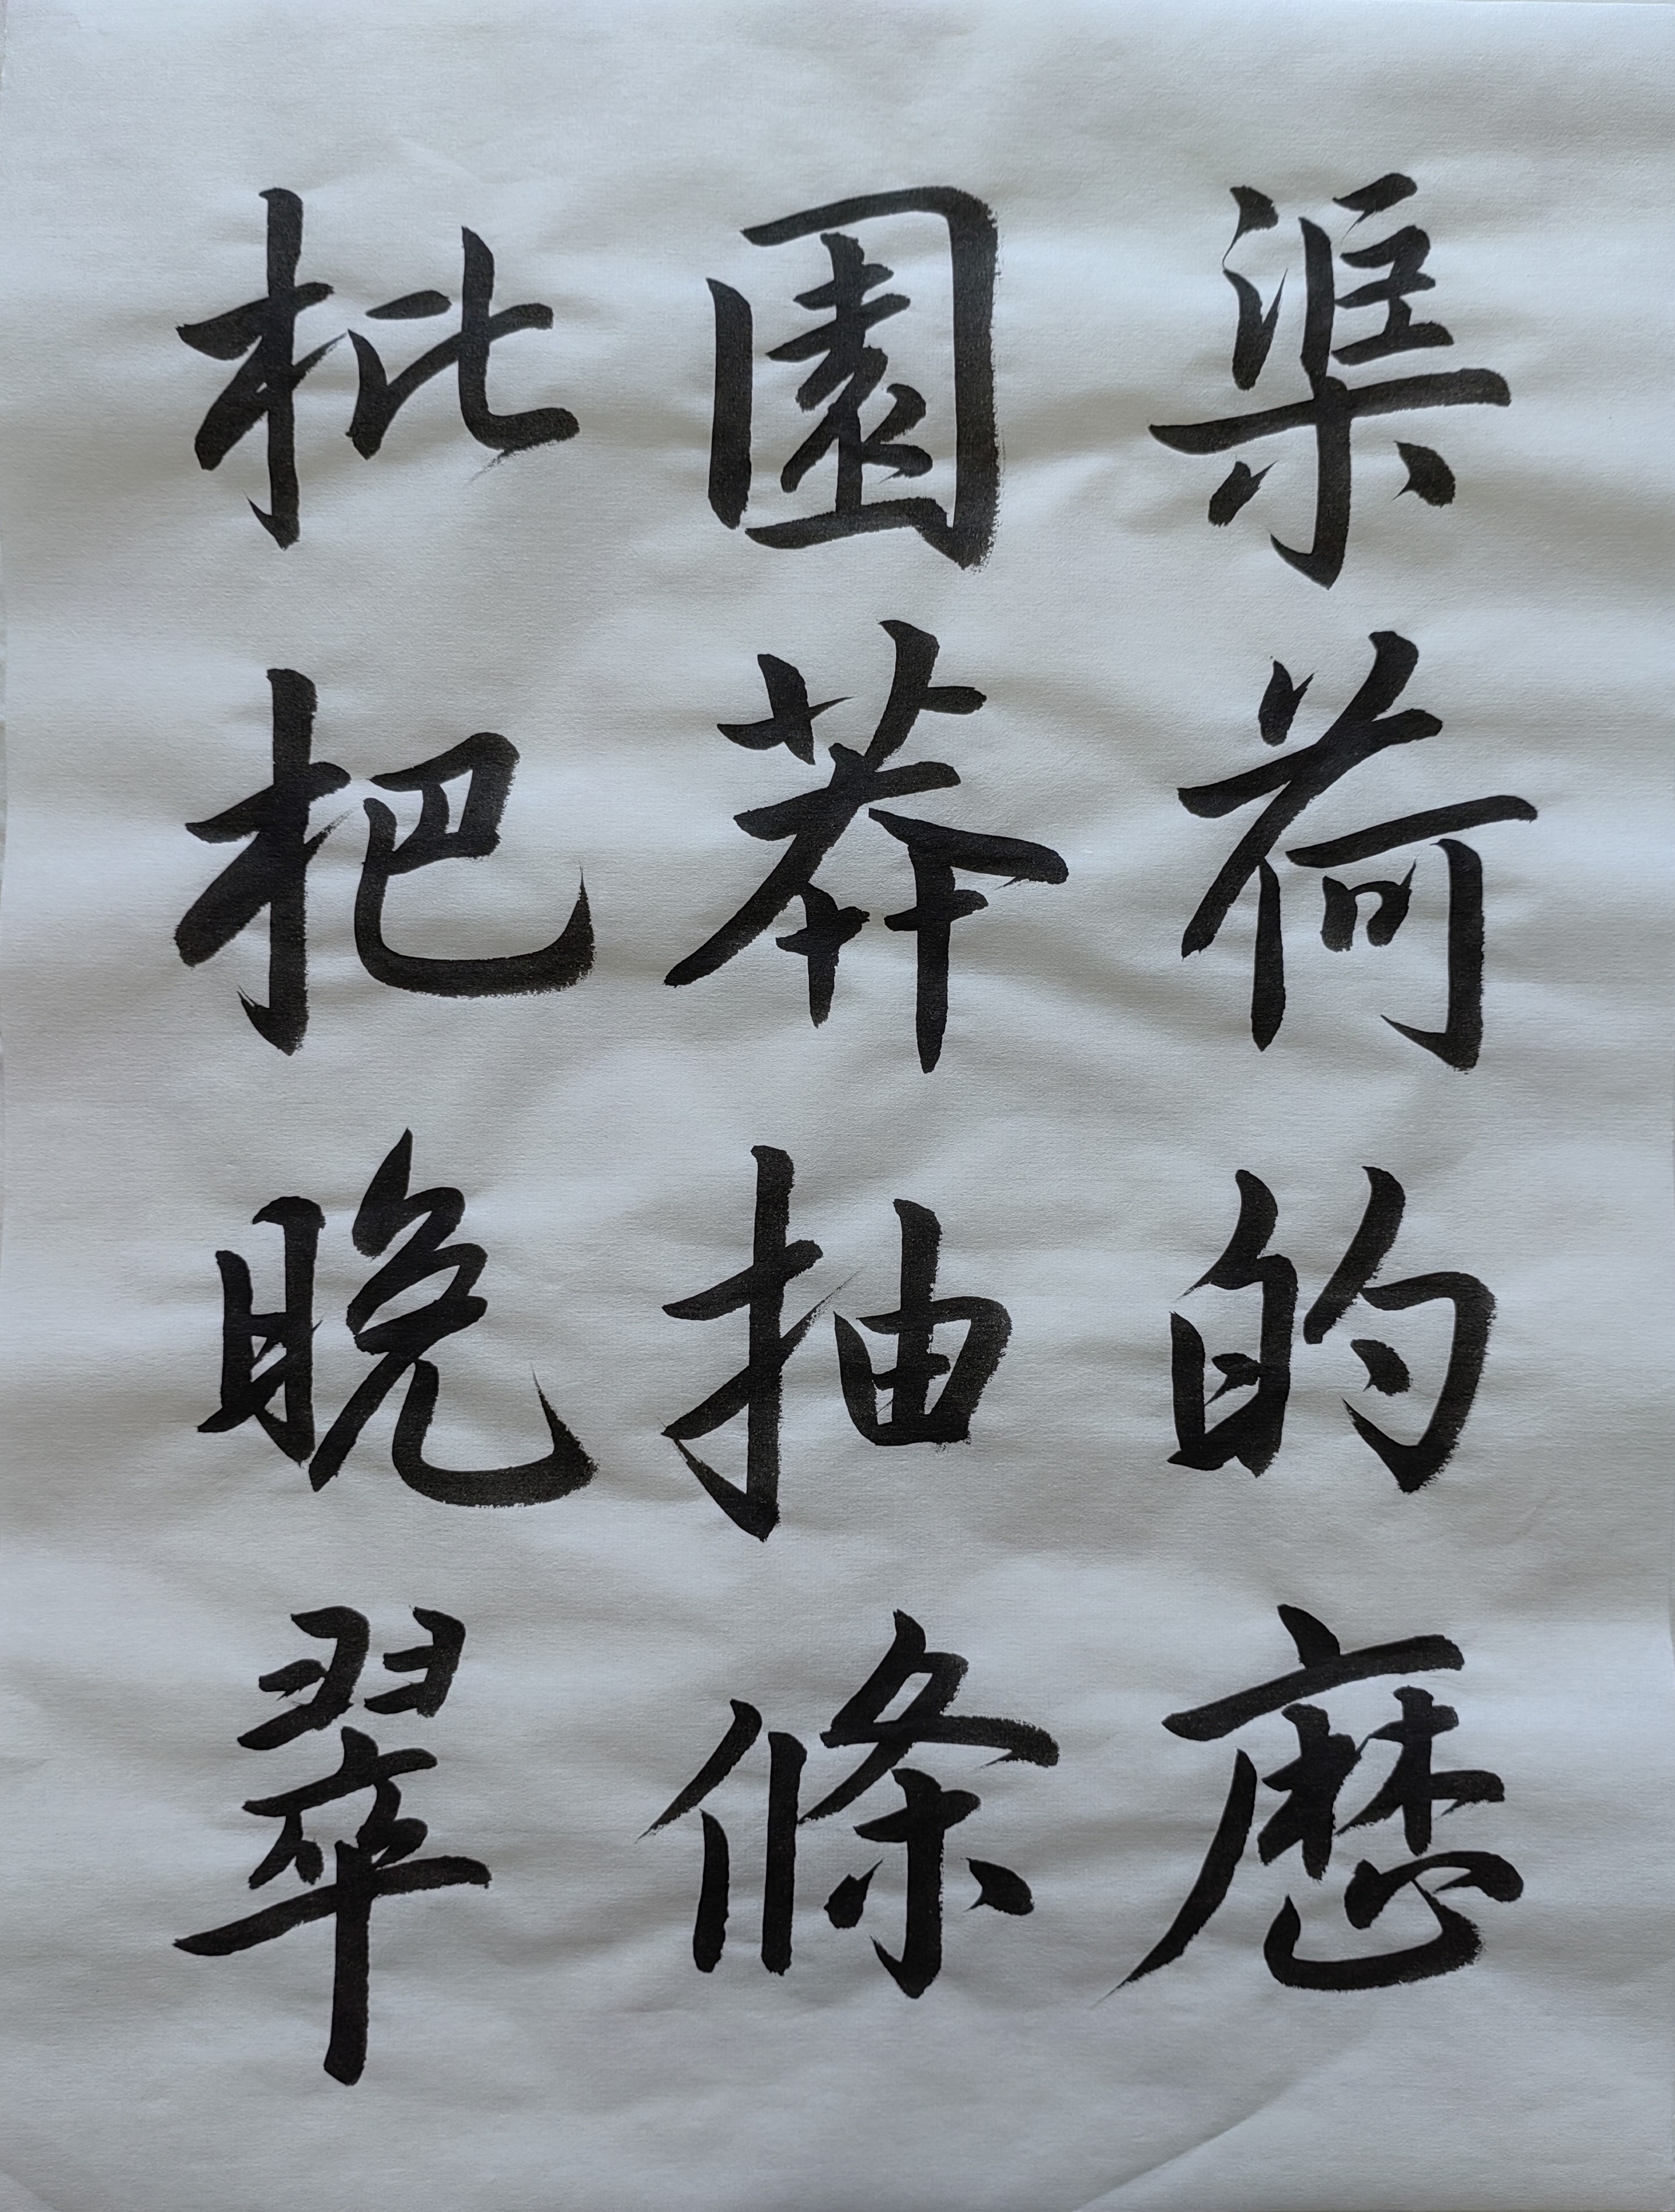 渠荷的歷
園莽抽條
枇杷晚翠